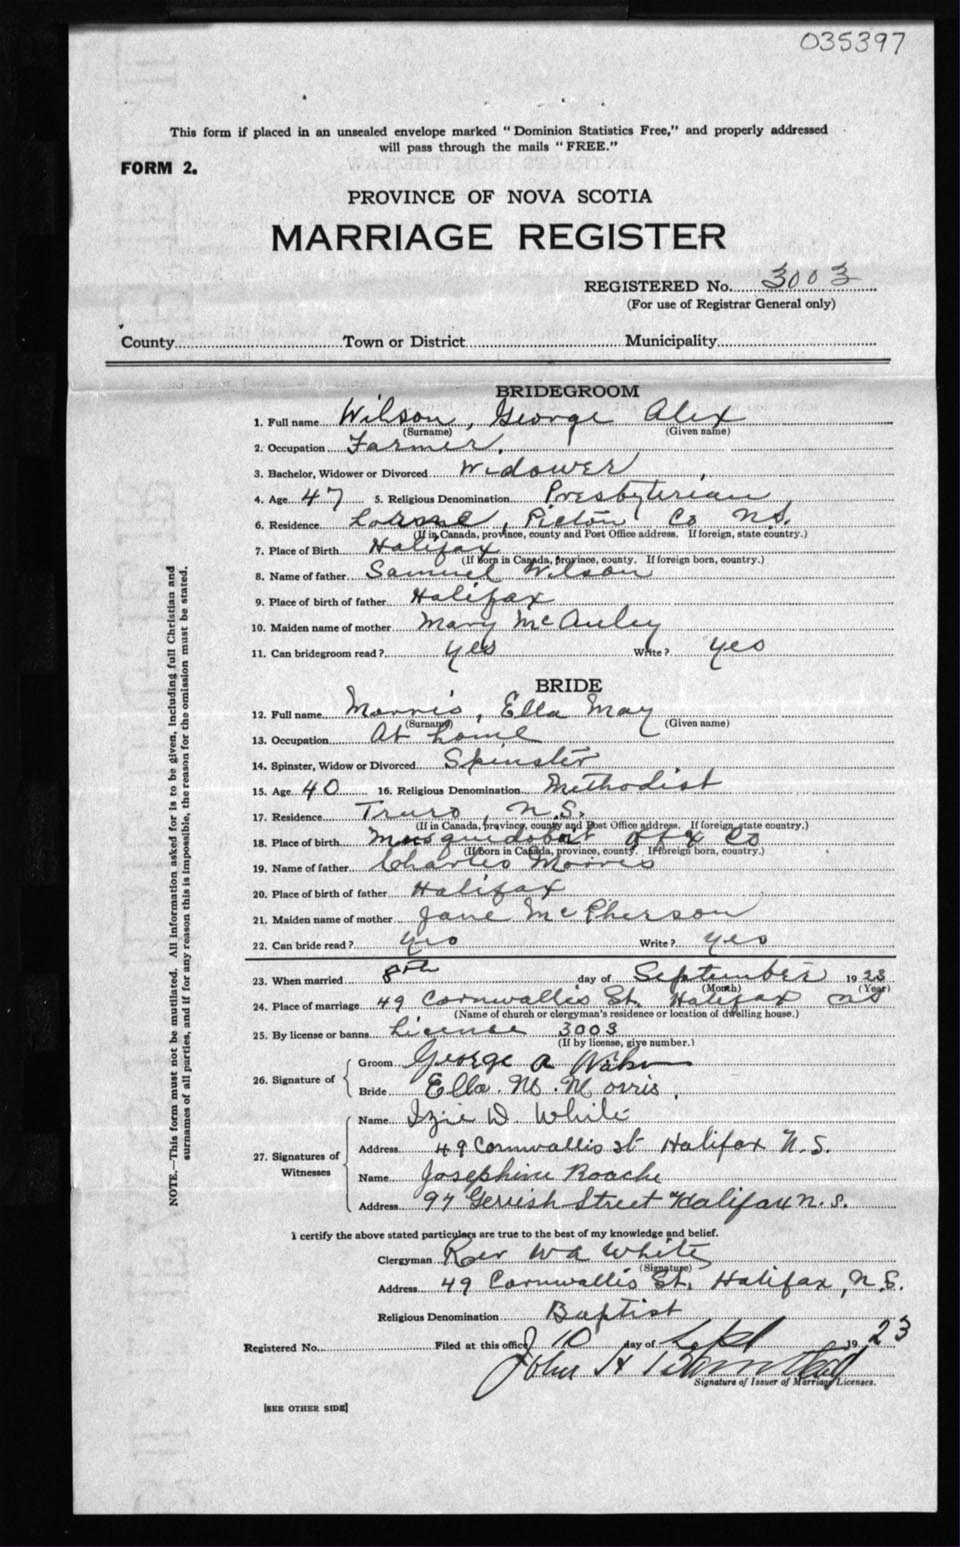 035397
This form if placed in an unsealed envelope marked "Dominion Statistics Free," and properly addressed
will pass through the mails "FREE."
FORM 2.
PROVINCE OF NOVA SCOTIA
MARRIAGE REGISTER
REGISTERED No. 3003
(For use of Registrar General only)
County Town or District Municipality
BRIDEGROOM
1. Full name Wilson, George Alex
(Surname) (Given name)
2. Occupation Farmer.
3. Bachelor, Widower or Divorced Widower
4. Age 47 5. Religious Denomination Presbyterian
6. Residence Lorne, Pictou Co N.S.
(If in Canada, province, county and Post Office address. If foreign, state country.)
7. Place of Birth Halifax
(If born in Canada, province, county. If foreign born, country.)
8. Name of father Samuel Wilson
9. Place of birth of father Halifax
10. Maiden name of mother Mary McAuley
11. Can bridegroom read? yes Write? yes
BRIDE
12. Full name Morris, Ella May
(Surname) (Given name)
13. Occupation At home
14. Spinster, Widow or Divorced Spinster
15. Age 40 16. Religious Denomination Methodist
17. Residence Truro, N.S.
(If in Canada, province, county and Post Office address. If foreign, state country.)
18. Place of birth Musquidobit Hfx Co
(If born in Canada, province, county. If foreign born, country.)
19. Name of father Charles Morris
20. Place of birth of father Halifax
21. Maiden name of mother Jane McPherson
22. Can bride read? yes Write? yes
23. When married 8th day of September 1923
(Month) (Year)
24. Place of marriage 49 Cornwallis St. Halifax NS
(Name of church or clergyman's residence or location of dwelling house.)
25. By license or banns License 3003
(If by license, give number.)
26. Signature of Groom George A Wilson
Bride Ella. M. Morris.
27. Signatures of Witnesses Name Izie D. White
Address 49 Cornwallis St Halifax N.S.
Name Josephine Roache
Address 97 Gerrish Street Halifax N.S.
I certify the above stated particulars are true to the best of my knowledge and belief.
Clergyman Rev W A White
(Signature)
Address 49 Cornwallis St. Halifax, N.S.
Religious Denomination Baptist
Registered No. Filed at this office 10 day of Sept 1923
John H
Signature of Issuer of Marriage Licenses.
[SEE OTHER SIDE]
NOTE.—This form must not be mutilated. All information asked for is to be given, including full Christian and
surnames of all parties, and if for any reason this is impossible, the reason for the omission must be stated.